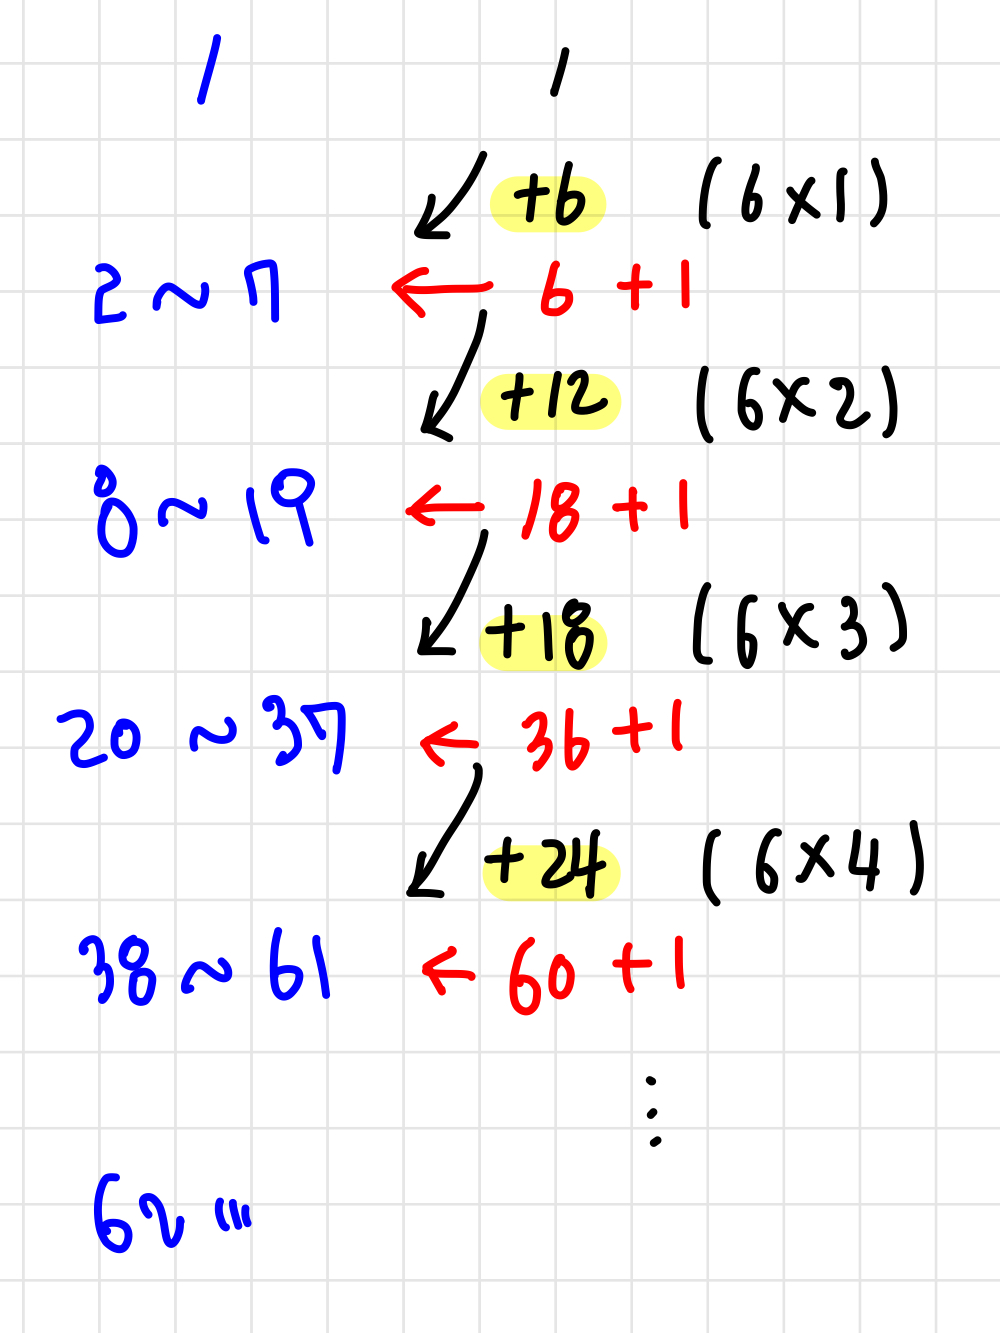 1 1
+6 (6×1)
2 ~ 7 ← 6 + 1
+12 (6×2)
8 ~ 19 ← 18 + 1
+18 (6×3)
20 ~ 37 ← 36 + 1
+24 (6×4)
38 ~ 61 ← 60 + 1
⋮
62 ...